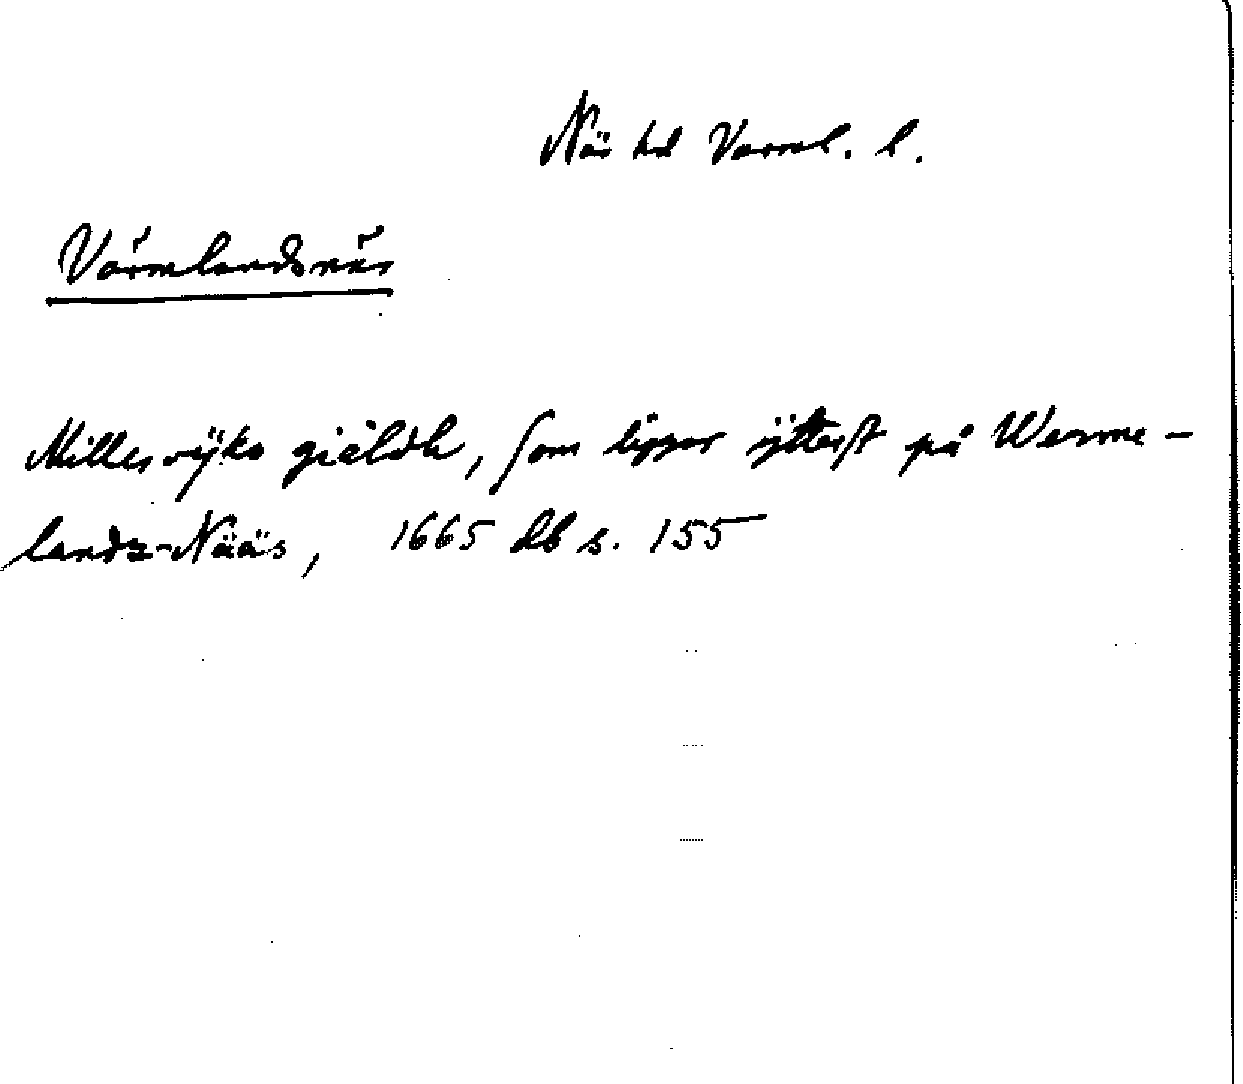 Näs hd Värml. l.
Värmlandsnäs
Millesvijks giäldh, som ligger ijtterst på Werme-
landz-Nääs, 1665 db s. 155